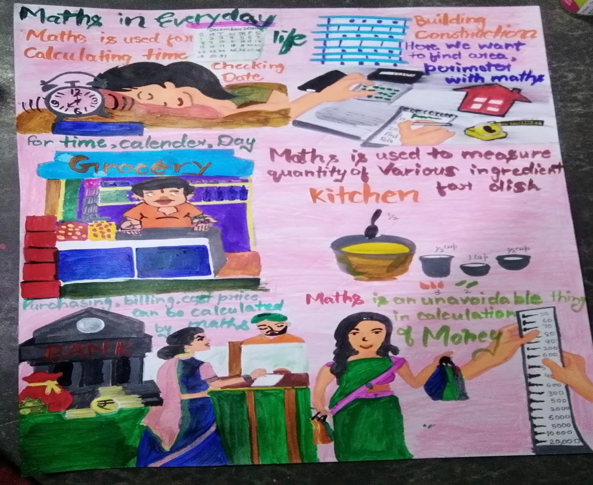 Maths in Everyday life
Maths is used for
Calculating time
Checking
Date
for time, calender, Day
Building
Construction
Here we want
to find area,
perimeter
with maths
Grocery
Maths is used to measure
quantity of various ingredient
for dish
Kitchen
1/2 cup
1 cup
Purchasing, billing, cost price
can be calculated
by maths
Maths is an unavoidable thing
in calculation
of Money
BANK